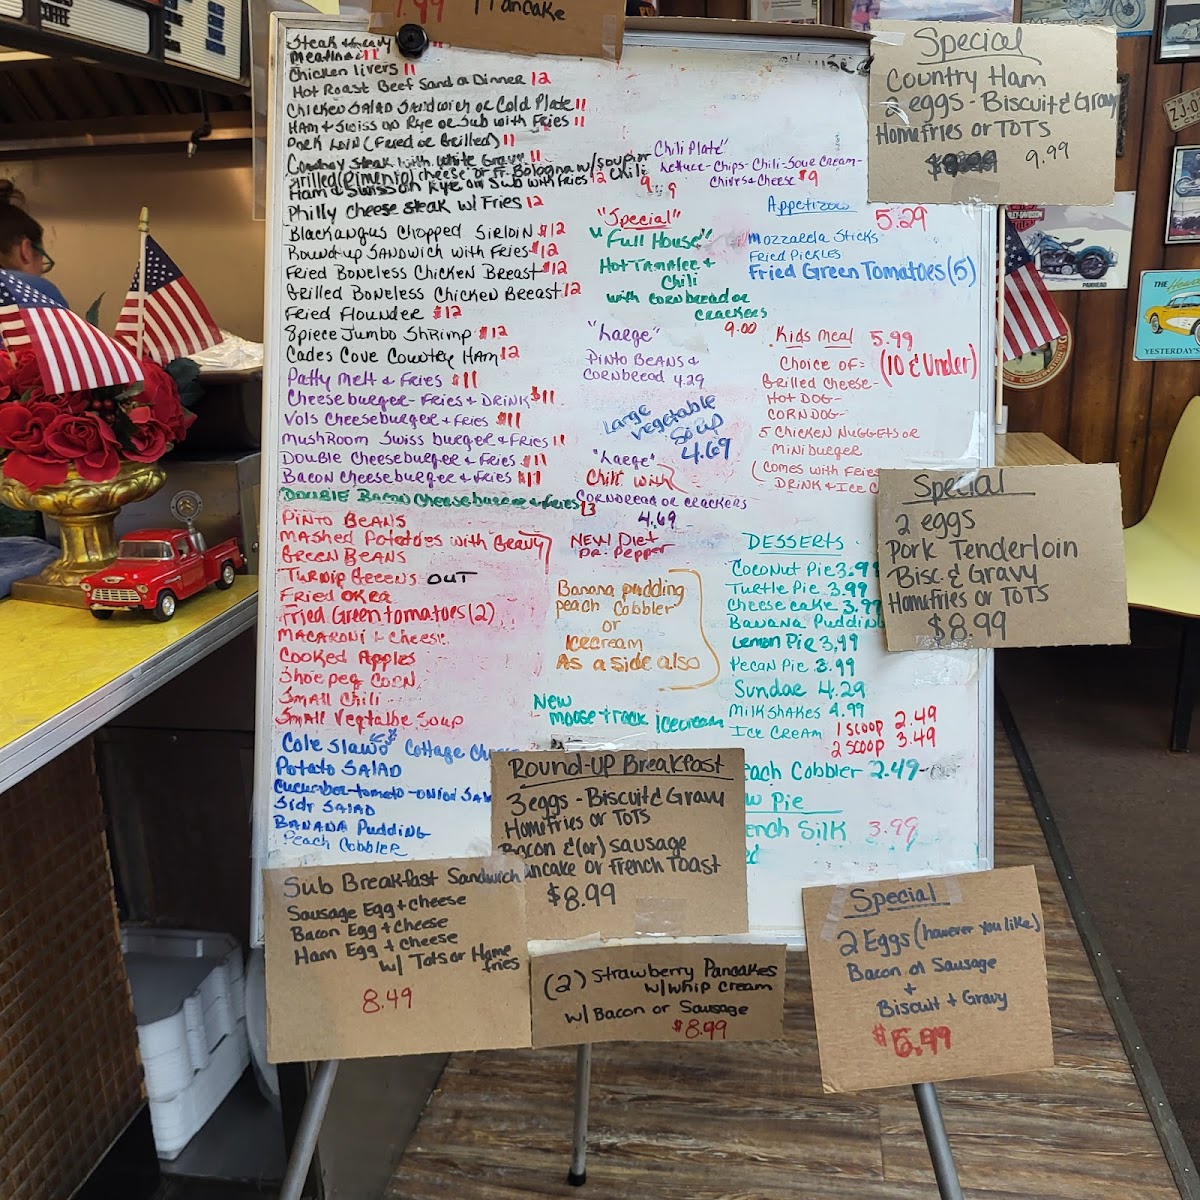 7.99 Pancake
Steak & Gravy 11
Meatloaf 11
Chicken livers 11
Hot Roast Beef Sand or Dinner 12
Chicken Salad Sandwich or Cold Plate 11
Ham & Swiss on Rye or Sub with Fries 11
Pork Loin (Fried or Grilled) 11
Cowboy Steak with White Gravy 11
Grilled (Pimento) cheese or Fr. Bologna w/ soup or chili 9
Ham & Swiss on Rye or Sub with Fries 12
Philly cheese steak w/ Fries 12
Blackangus Chopped Sirloin $12
Round-up Sandwich with Fries $12
Fried Boneless Chicken Breast $12
Grilled Boneless Chicken Breast 12
Fried Flounder $12
8piece Jumbo Shrimp $12
Cades Cove Country Ham 12
Patty Melt & Fries $11
Cheeseburger - Fries & Drink $11
Vols Cheeseburger & Fries $11
Mushroom Swiss burger & Fries 11
Double Cheeseburger & Fries $11
Bacon Cheeseburger & Fries $11
Double Bacon Cheeseburger & Fries 13
Pinto Beans
Mashed Potatoes with Gravy
Green Beans
Turnip Greens OUT
Fried Okra
Fried Green tomatoes (2)
Macaroni & Cheese
Cooked Apples
Shoepeg Corn
Small Chili
Small Vegtalbe Soup
Cole Slaw
Cottage
Potato Salad
Cucumber-tomato-onion
Side Salad
Banana Pudding
Peach Cobbler
"Chili Plate"
Lettuce-Chips-Chili-Sour Cream-
Chives & Cheese $9
"Special"
"Full House"
Hot Tamalee &
Chili
with cornbread or
crackers
9.00
"Large"
Pinto Beans &
Cornbread 4.29
Large
Vegetable
Soup
4.69
"Large"
Chili with
Cornbread or crackers
4.69
New! Diet
Dr. Pepper
Banana pudding
peach cobbler
or
Icecream
As a side also
New
moose track Icecream
Appetizers
5.29
Mozzarella Sticks
Fried Pickles
Fried Green Tomatoes (5)
Kids meal 5.99
(10 & Under)
Choice of:
Grilled Cheese-
Hot Dog-
Corndog-
5 Chicken Nuggets or
Miniburger
(Comes with Fries
Drink & Ice C
Desserts
Coconut Pie 3.99
Turtle Pie 3.99
Cheesecake 3.99
Banana Pudding
Lemon Pie 3.99
Pecan Pie 3.99
Sundae 4.29
Milkshakes 4.99
Ice Cream 1 scoop 2.49
2 scoop 3.49
each Cobbler 2.49
w Pie
ench Silk 3.99
Special
Country Ham
2 eggs - Biscuit & Gravy
Homefries or TOTS
9.99
Special
2 eggs
Pork Tenderloin
Bisc. & Gravy
Homefries or TOTS
$8.99
Round-UP Breakfast
3 eggs - Biscuit & Gravy
Homefries or TOTS
Bacon &(or) sausage
ancake or French Toast
$8.99
Sub Breakfast Sandwich
Sausage Egg + cheese
Bacon Egg + cheese
Ham Egg + cheese
w/ Tots or Home fries
8.49
(2) Strawberry Pancakes
w/whip cream
w/ Bacon or Sausage
$8.99
Special
2 Eggs (however you like)
Bacon or Sausage
+
Biscuit + Gravy
$5.99
PANHEAD
THE
YESTERDAY'S